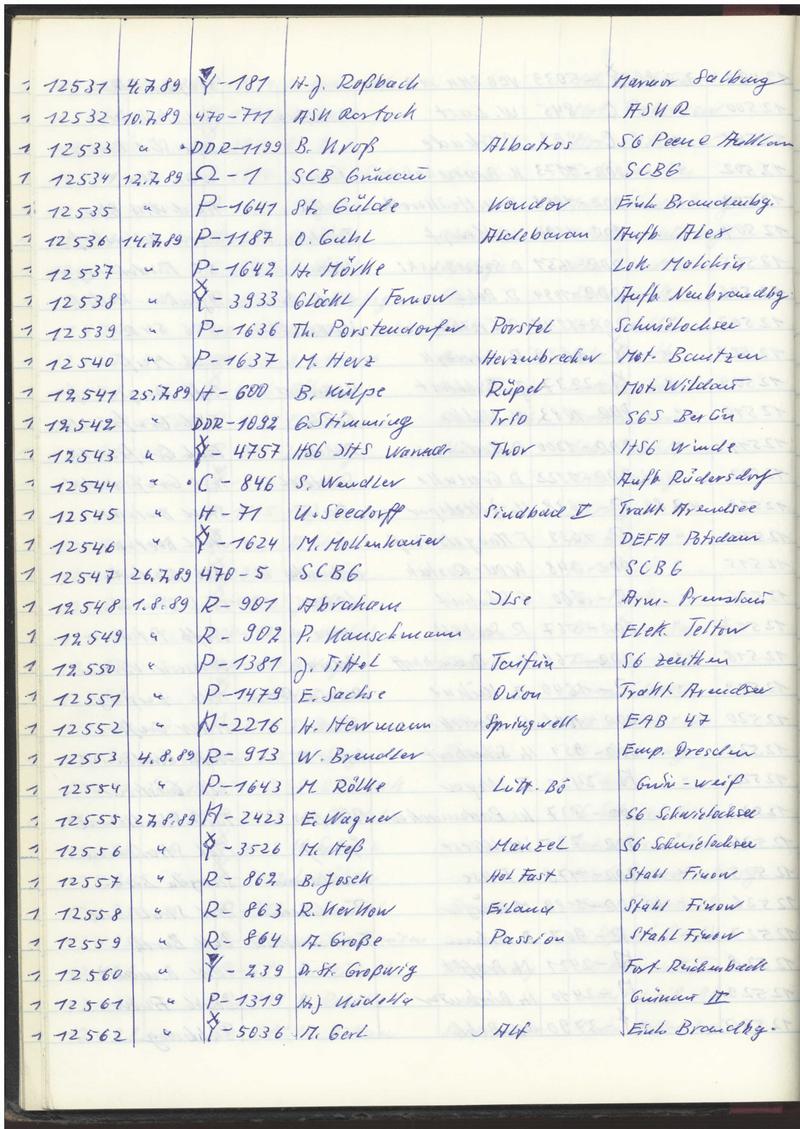 1 12531 4.7.89 Y-181 H-J. Roßbach Marmor Salburg
1 12532 10.7.89 470-711 ASK Rostock ASKR
1 12533 " DDR-1199 B. Kroß Albatros SG Peene Anklam
1 12534 12.7.89 Ω-1 SCB Grünau SCBG
1 12535 " P-1641 St. Gülde Kondor Einh. Brandenbg.
1 12536 14.7.89 P-1187 O. Guhl Aldebaran Aufb. Alex
1 12537 " P-1642 H. Mörke Lok. Malchin
1 12538 " Y-3933 Glöckl / Fernow Aufb. Neubrandbg.
1 12539 " P-1636 Th. Porstendorfer Porstel Schwielochsee
1 12540 " P-1637 M. Herz Herzenbrecher Mot. Bautzen
1 12541 25.7.89 H-600 B. Külpe Rüpel Mot. Wildau
1 12542 " DDR-1092 G. Stimming Trio SGS Berlin
1 12543 " Y-4757 HSG IHS Thor HSG
1 12544 " C-846 S. Wendler Aufb. Rüdersdorf
1 12545 " H-71 U. Seedorff Sindbad V Trakt. Arendsee
1 12546 " Y-1624 M. Mollenhauer DEFA Potsdam
1 12547 26.7.89 470-5 SCBG SCBG
1 12548 1.8.89 R-901 Abraham Ilse Arm. Prenzlau
1 12549 " R-902 P. Hauschmann Elek. Teltow
1 12550 " P-1381 J. Tittel Taifun SG Zeuthen
1 12551 " P-1479 E. Sachse Orion Trakt. Arendsee
1 12552 " H-2216 H. Herrmann Springwell EAB 47
1 12553 4.8.89 R-913 W. Brendler Emp. Dresden
1 12554 " P-1643 M. Rölke Lütt. Bö Grün-weiß
1 12555 27.8.89 H-2423 E. Wagner SG Schwielochsee
1 12556 " Y-3526 M. Heß Manzel SG Schwielochsee
1 12557 " R-862 B. Josek Hol Fast Stahl Finow
1 12558 " R-863 R. Kerkow Eiland Stahl Finow
1 12559 " R-864 A. Große Passion Stahl Finow
1 12560 " Y-239 Dr. St. Großwig Fort. Reichenbach
1 12561 " P-1319 H-J Kudella Grünau II
1 12562 " Y-5036 M. Gerl Alf Einh. Brandbg.